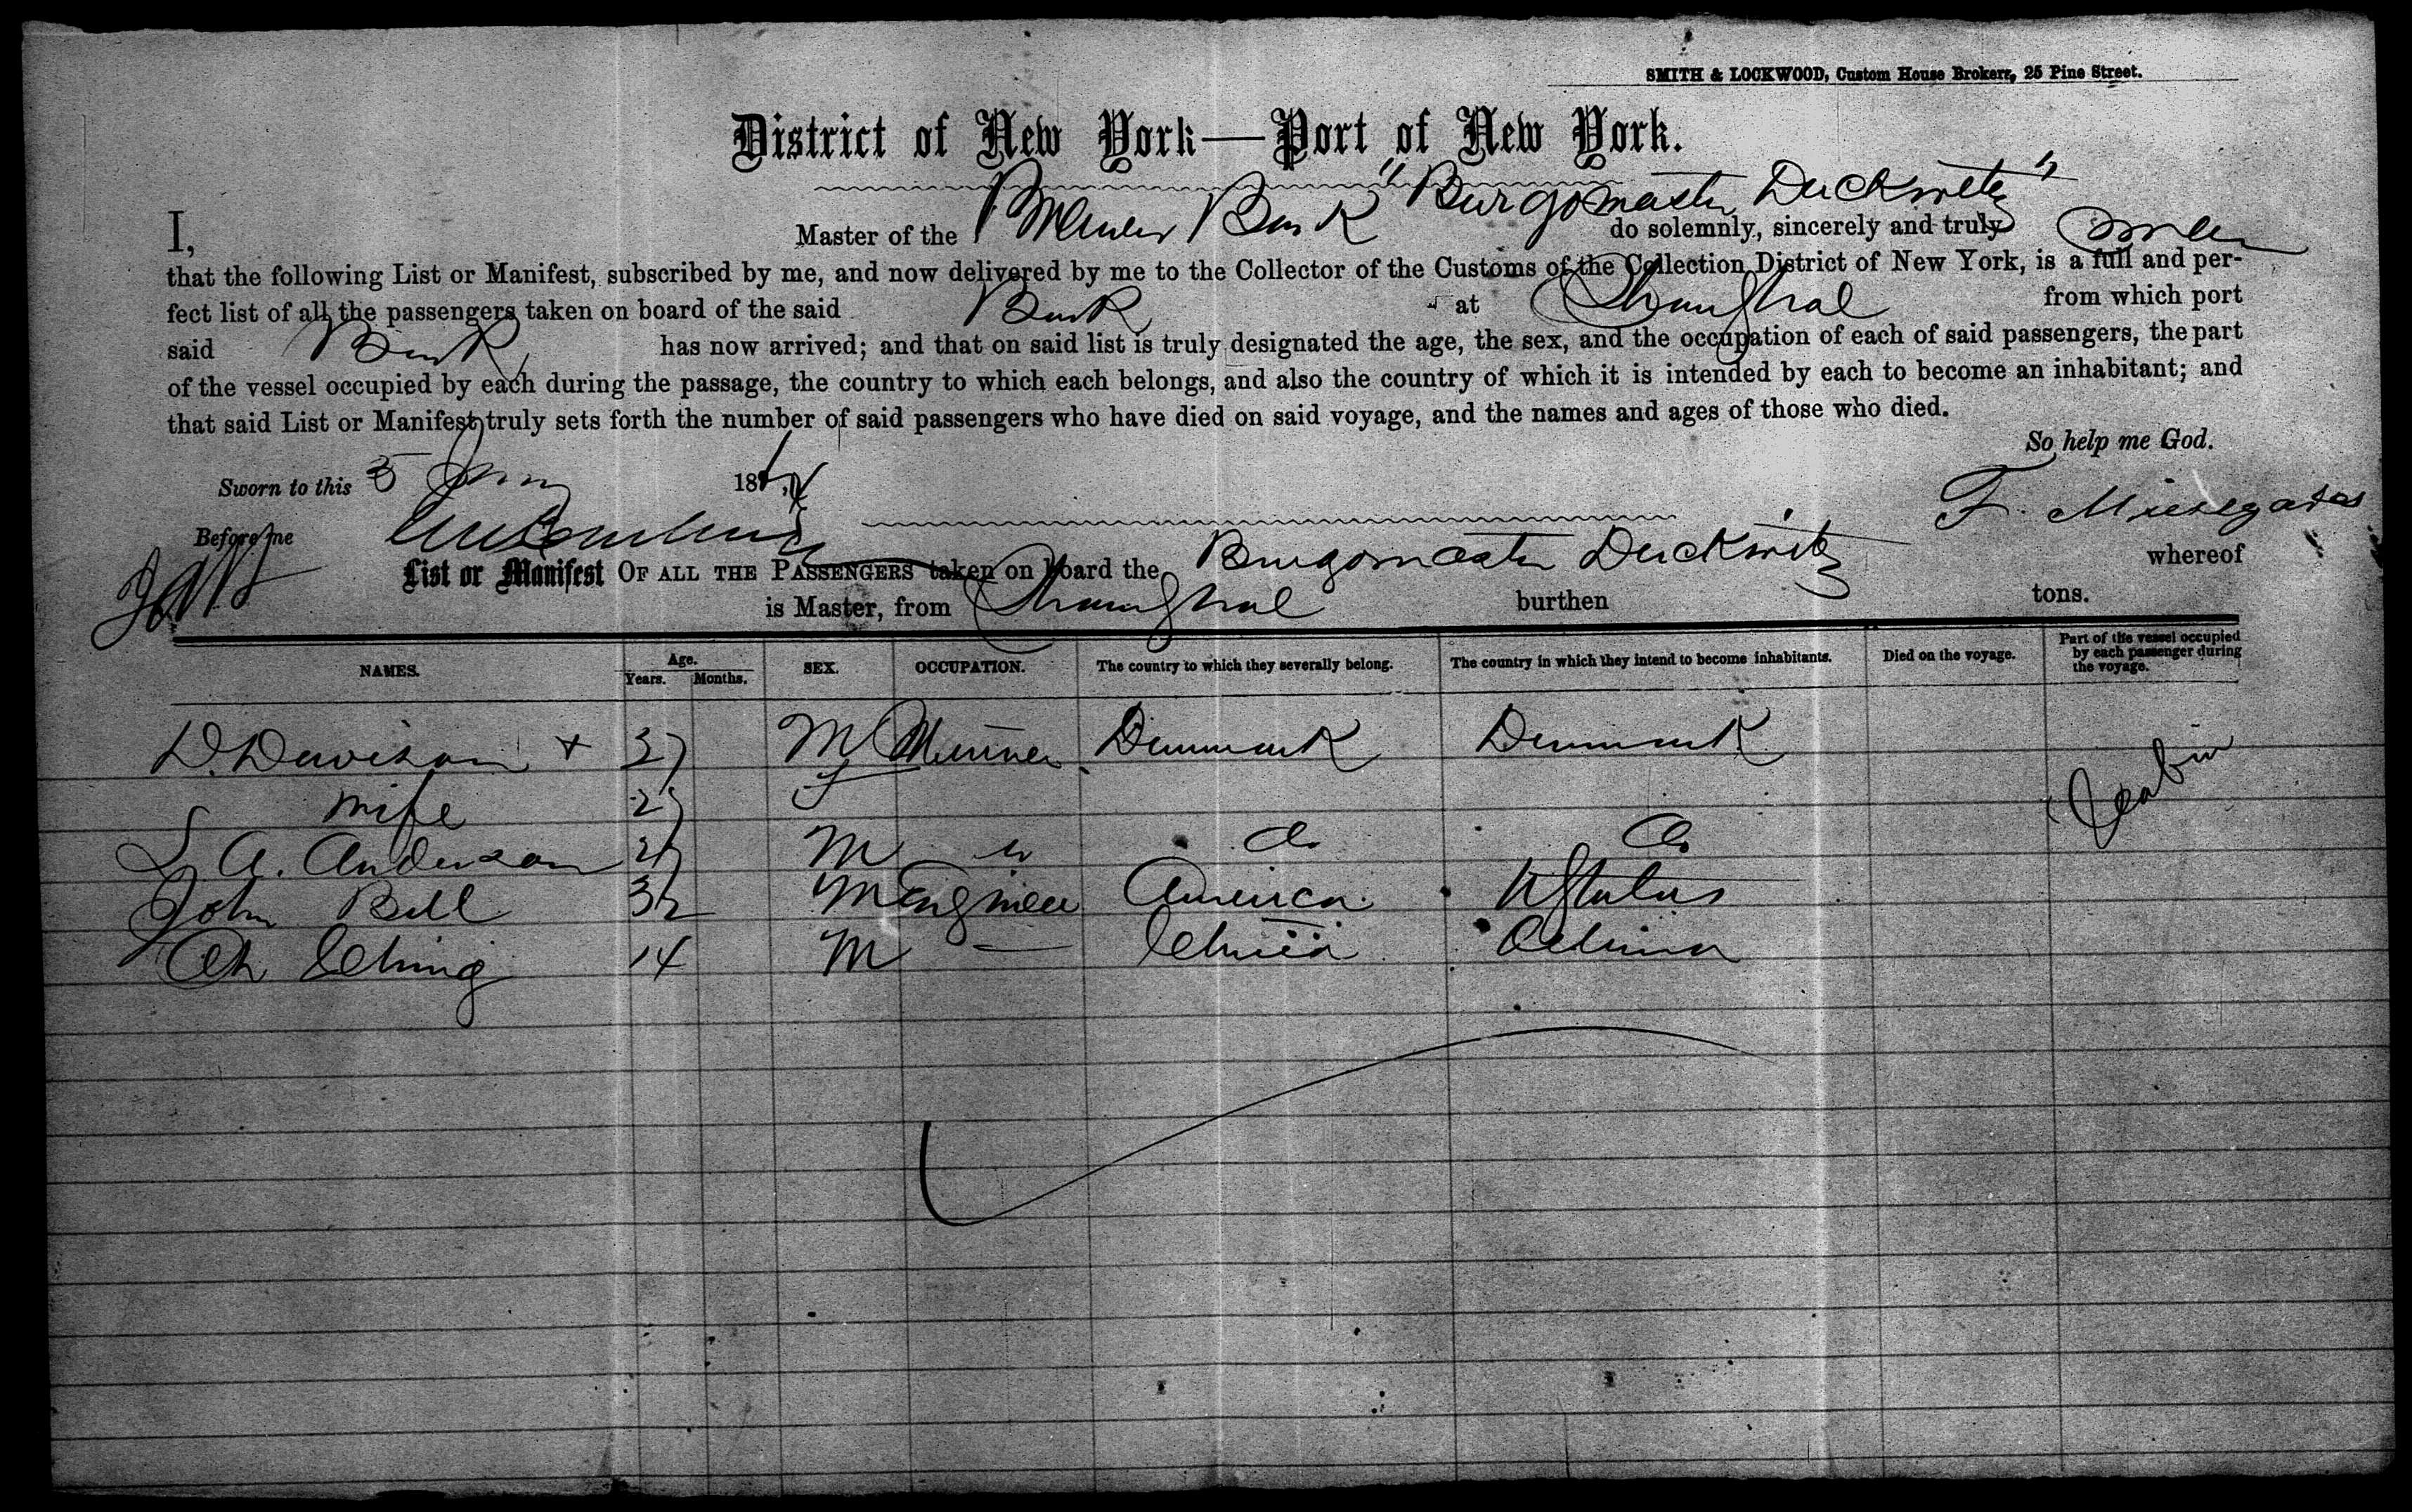 SMITH & LOCKWOOD, Custom House Brokers, 25 Pine Street.
District of New York—Port of New York.
I, Master of the Bremer Bark "Burgomaster Duckwitz" do solemnly, sincerely and truly swear
that the following List or Manifest, subscribed by me, and now delivered by me to the Collector of the Customs of the Collection District of New York, is a full and per-
fect list of all the passengers taken on board of the said Bark at Shanghai from which port
said Bark has now arrived; and that on said list is truly designated the age, the sex, and the occupation of each of said passengers, the part
of the vessel occupied by each during the passage, the country to which each belongs, and also the country of which it is intended by each to become an inhabitant; and
that said List or Manifest truly sets forth the number of said passengers who have died on said voyage, and the names and ages of those who died.
So help me God.
Sworn to this 5 186
Before me
F.
List or Manifest OF ALL THE PASSENGERS taken on board the Burgomaster Duckwitz whereof
is Master, from Shanghai burthen tons.
NAMES. Age. Years. Months. SEX. OCCUPATION. The country to which they severally belong. The country in which they intend to become inhabitants. Died on the voyage. Part of the vessel occupied by each passenger during the voyage.
D. Davison + M Mariner Denmark Denmark
wife f Cabin
A. Anderson M " do do
John Bell 32 M Engineer America UStates
Ah Ching 14 M — China China